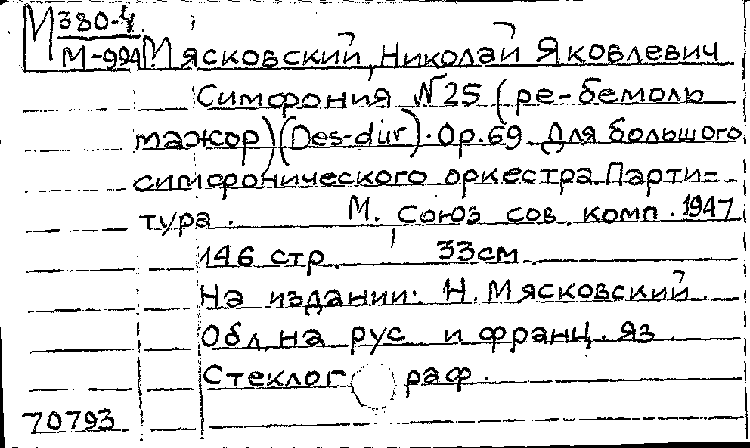 М 380-4
М-994 Мясковский, Николай Яковлевич
Симфония №25 (ре-бемоль
мажор) (Des-dur). Op.69. Для большого
симфонического оркестра. Парти=
тура. М. Союз сов. комп. 1947
146 стр. 33 см.
На издании: Н. Мясковский.
Обл. на рус. и франц. яз.
Стеклограф.
70793